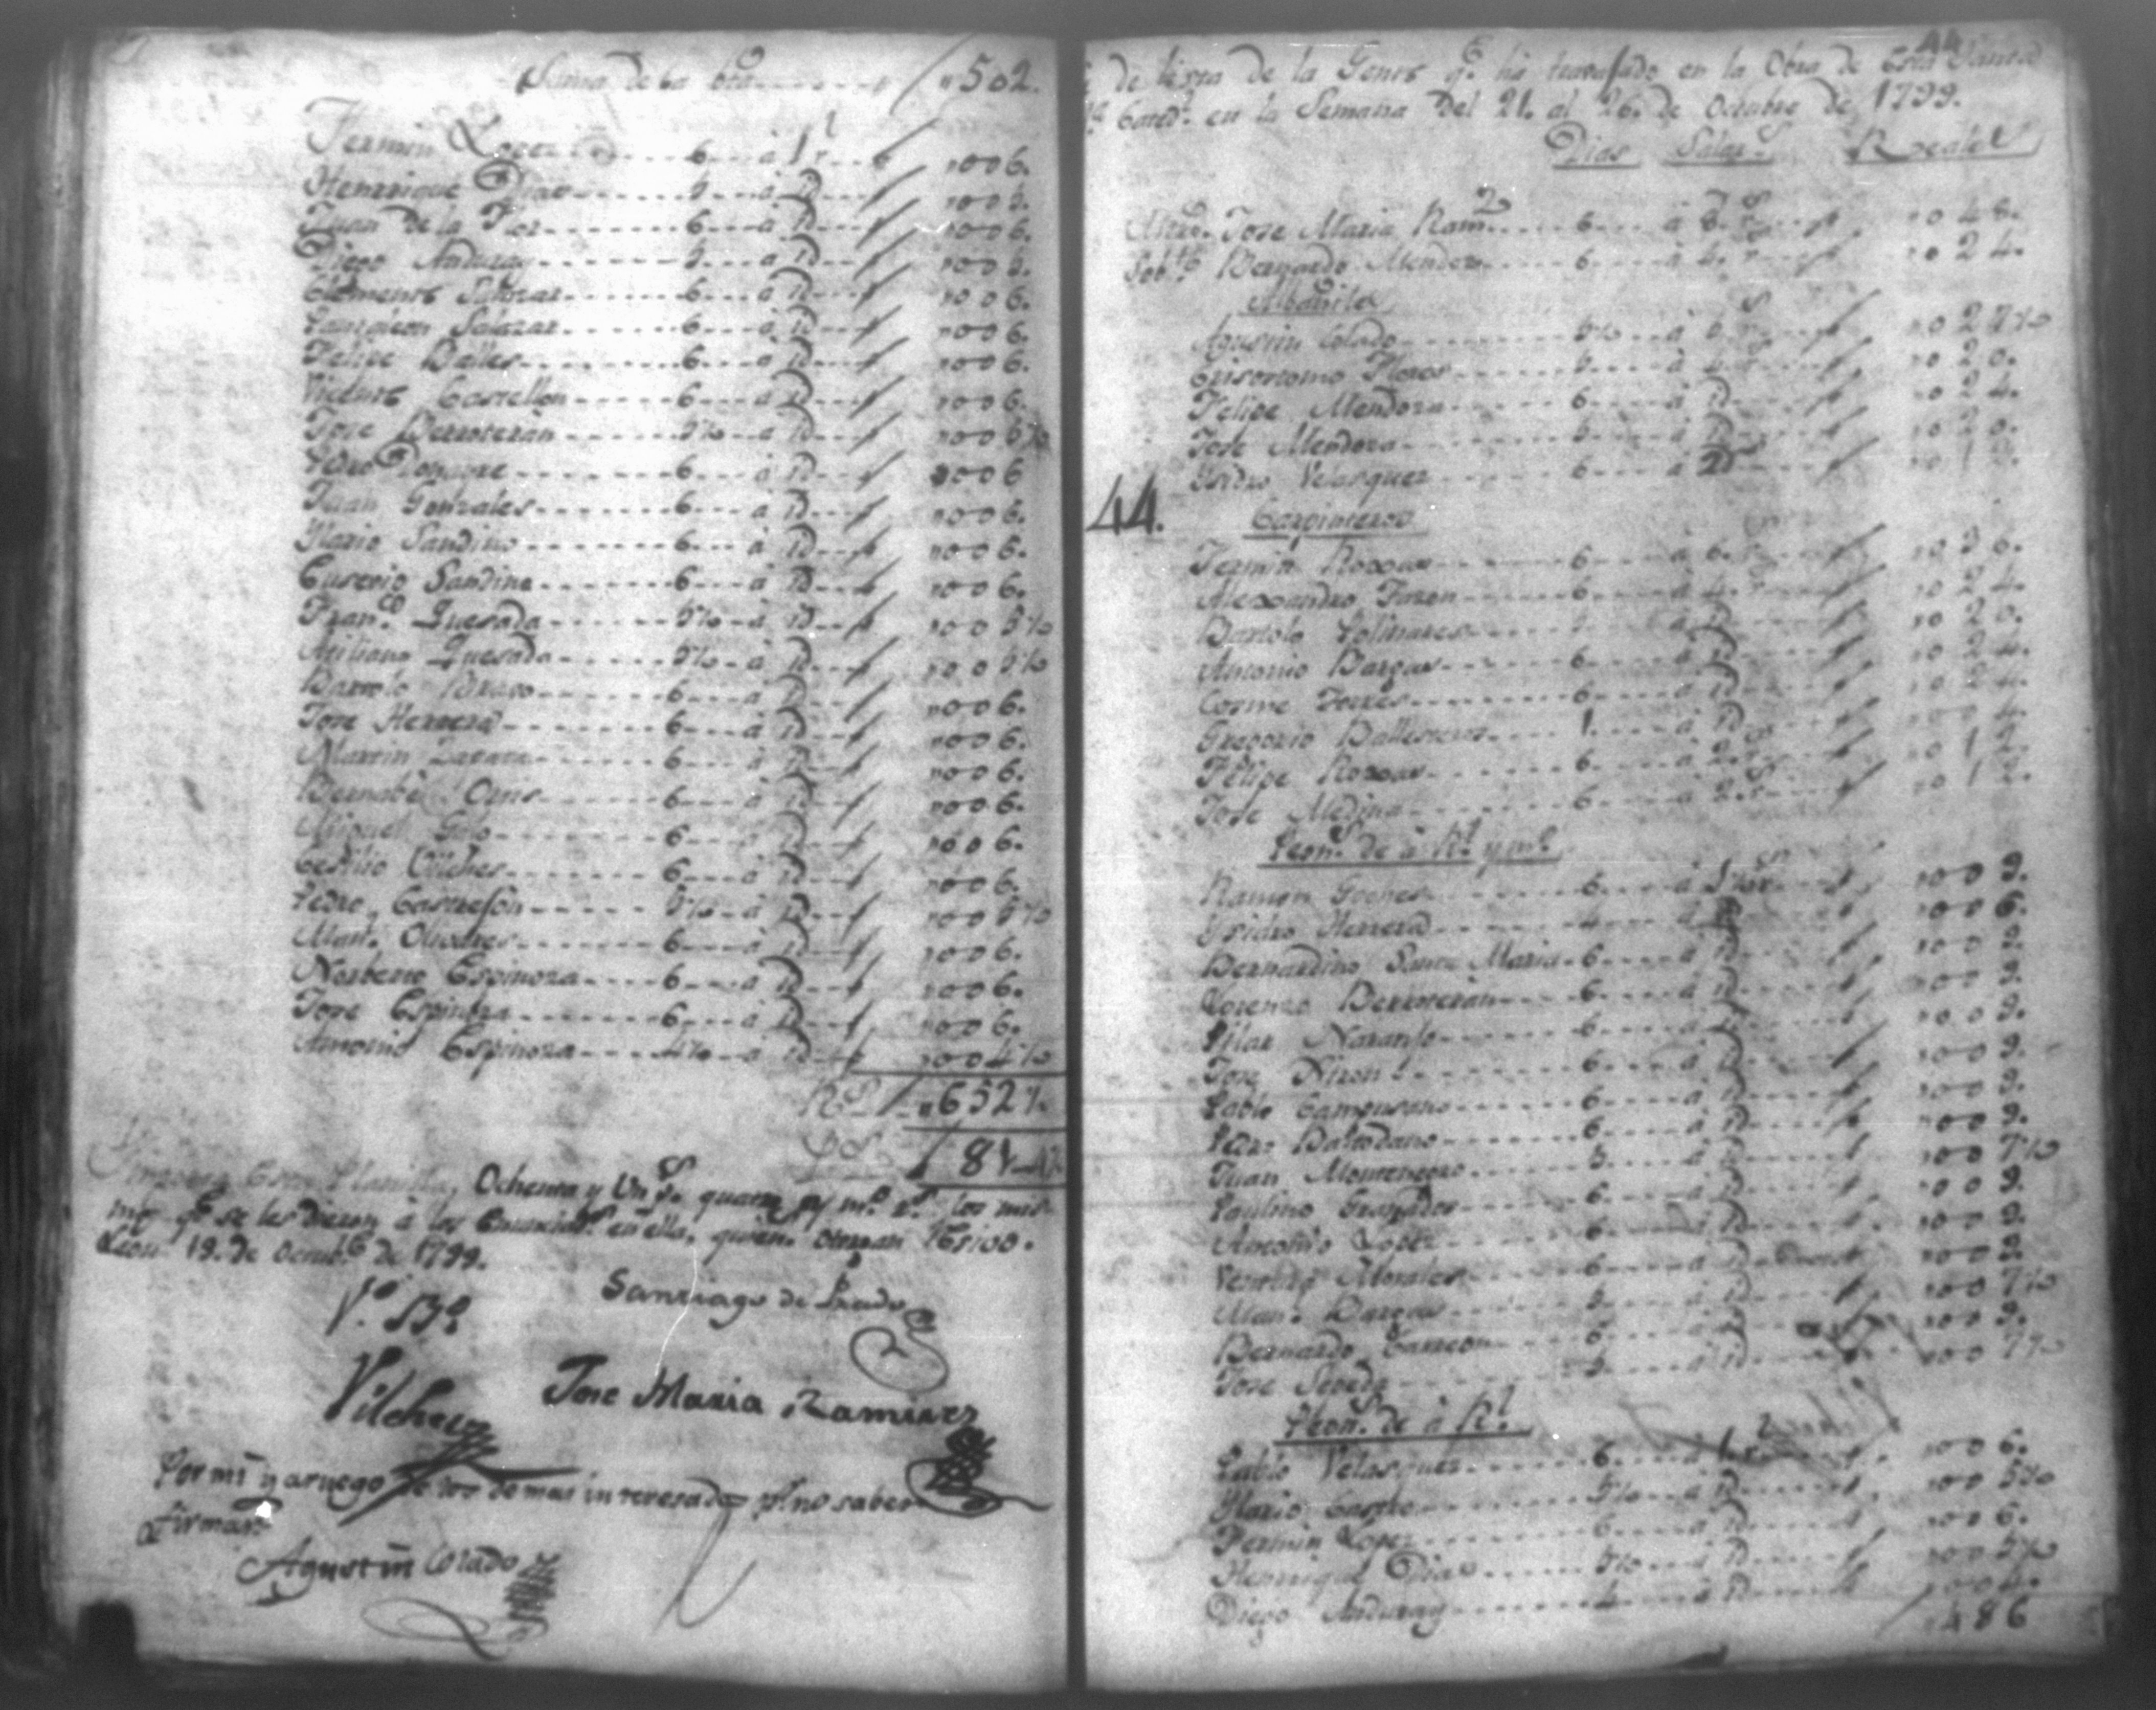 Suma de la bta 502.
Fermin Lopez 6 à 1 r. 006.
Henrrique Dias 5 à id 005.
Juan de la Flor 6 à id 006.
Diego Anduray 5 à id 005.
Clemente Salazar 6 à id 006.
Pantaleon Salazar 6 à id 006.
Felipe Balles 6 à id 006.
Vicente Castellon 6 à id 006.
Jose Berroteran 5½ à id 005½
Pedro 6 à id 006
Juan Gonzales 6 à id 006.
Ylario Sandino 6 à id 006.
Eusevio Sandino 6 à id 006.
Fran.co Quesada 5½ à id 005½
Quesada 5½ à id 005½
Bartolo Bravo 6 à id 006.
Jose Herrera 6 à id 006.
Martin Zapata 6 à id 006.
Bernabe Ortis 6 à id 006.
Miguel 6 à id 006.
Vilches 6 à id 006.
Pedro Castrejon 5½ à id 005½
Man.l Olivares 6 à id 006.
Norberto Espinoza 6 à id 006.
Jose Espinoza 6 à id 006.
Antonio Espinoza 4½ à id 004½
R.s 652½
81-4½
Ymporta Esta Planilla, Ochenta y Un p.s quatro y m.o r.s los mis-
mos q.e se les dieron à los Enunciad.s en ella, quien. otorgan Resivo.
Leon 19. de Octub.e de 1799.
V.o B.o
Santiago de Prado
Vilchez
Jose Maria Ramirez
Por mi y a ruego de los demas interesados p.r no saber
firmar
Agustin Colado
44
de lixta de la Gente q.e ha travajado en la Obra de Esta Santa
Cated.l en la Semana del 21. al 26. de Octubre de 1799.
Dias Salar.s Reales
Mro. Jose Maria Ram.z 6. à 8. r.s 048.
Sob.te Bernardo Mendoza 6. à 4. r. 024.
Albañiles
Agustin Colado 5½ à 5. r.s 027½
Crisostomo Flores 5. à 4. r. 020.
Felipe Mendoza 6. à id 024.
Jose Mendoza 5. à id 020.
Ysidro Velasquez 6. à 2 r.s 012.
44.
Carpinteros
Fermin Roxas 6. à 6. r.s 036.
Alexandro Faxon 6. à 4. r. 024.
Bartolo Colinares 5. à id 020.
Antonio Bargas 6. à id 024.
Cosme Torres 6. à id 024.
Gregorio Ballesteros 1. à id 004.
Felipe Roxas 6. à 2. r.s 012.
Jose Medina 6. à 2. r.s 012.
Peon.s de à R.l y m.o
Ramon 6. à 1½ r.s 009.
Ysidro Herrera 4. à id 006.
Bernardino Santa Maria 6. à id 009.
Lorenzo Berroteran 6. à id 009.
Pilar Naranjo 6. à id 009.
Jose 6. à id 009.
Pablo Campusano 6. à id 009.
Pedro Baltodano 6. à id 009.
Juan Montenegro 5. à id 007½
Paulino Granados 6. à id 009.
Antonio Lopez 6. à id 009.
Morales 6. à id 009.
Man.l Bargas 5. à id 007½
Bernardo 6. à id 009.
Jose 5. à id 007½
Peon.s de à R.l
Pablo Velasquez 6. à 1. r.l 006.
Ylario Castro 5½ à id 005½
Fermin Lopez 6. à id 006.
Henrriq.e Dias 5½ à id 005½
Diego Anduray 4. à id 004.
486